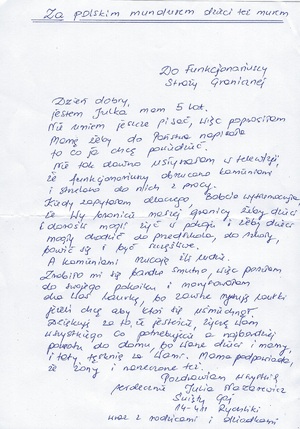 Za polskim mundurem dzieci też murem
Do Funkcjonariuszy
Straży Granicznej
Dzień dobry,
jestem Julka mam 5 lat.
Nie umiem jeszcze pisać, więc poprosiłam
Mamę żeby do Państwa napisała
to co ja chcę powiedzieć.
Nie tak dawno usłyszałam w telewizji,
że funkcjonariuszy obrzucano kamieniami
i strzelano do nich z procy.
Kiedy zapytałam dlaczego, Babcia wytłumaczyła
że Wy bronicie naszej granicy żeby dzieci
i dorośli mogli żyć w pokoju i żeby dzieci
mogły chodzić do przedszkola, do szkoły,
bawić się i być szczęśliwe.
A kamieniami rzucają źli ludzie.
Zrobiło mi się bardzo smutno, więc poszłam
do swojego pokoiku i narysowałam
dla Was laurkę, bo zawsze rysuję laurki
jeżeli chcę aby ktoś się uśmiechnął.
Dziękuję za to że jesteście, życzę Wam
wszystkiego co potrzebujecie a najbardziej
powrotu do domu, bo Wasze dzieci i mamy,
i taty tęsknią za Wami. Mama podpowiada,
że żony i narzeczone też.
Pozdrawiam wszystkich
serdecznie Julia
Święty Gaj
14-411 Rychliki
wraz z rodzicami i dziadkami